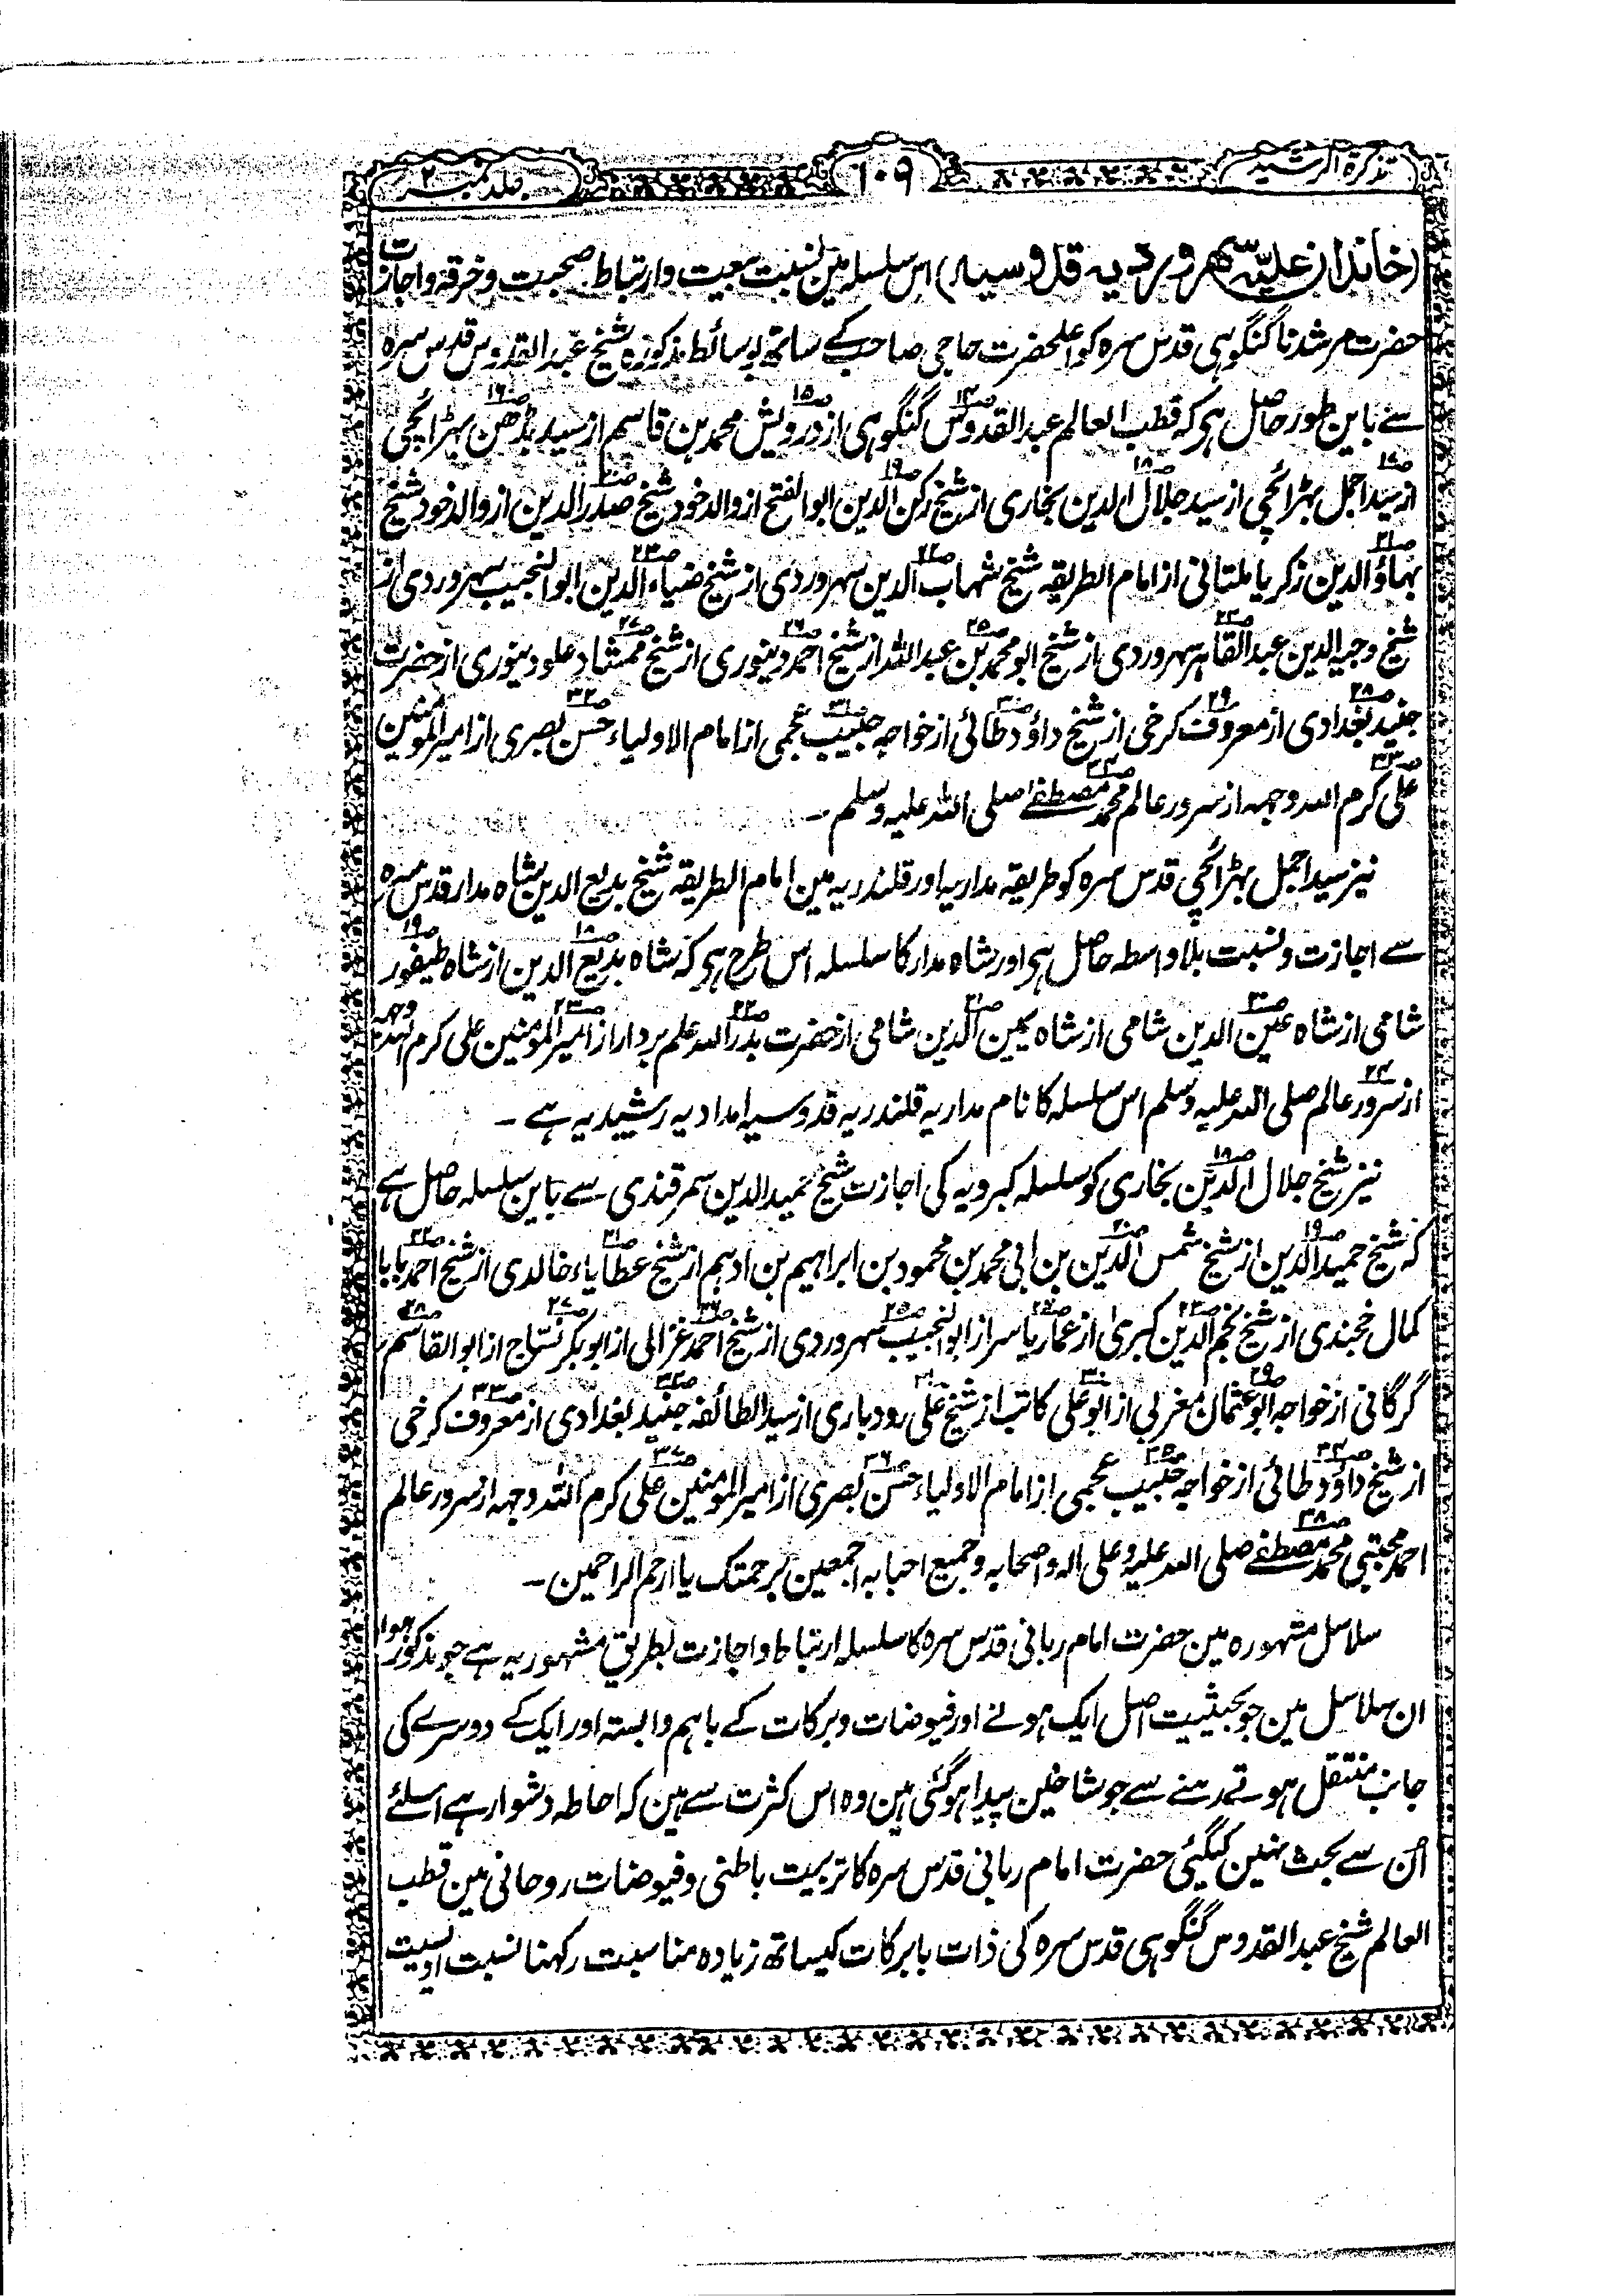 تذکرۃ الرشید
۱۰۹
جلد نمبر ۲
(خاندان علیّہ سہروردیہ قدوسیہ) اس سلسلہ مین نسبت بیعت وارتباط صحبت وخرقہ واجازت
حضرت مرشدنا گنگوہی قدس سرہ کو اعلحضرت حاجی صاحب کے ساتھ بوسائط مذکورہ شیخ عبدالقدوس قدس سرہ
سے باین طور حاصل ہی کہ قطب العالم عبدالقدوس ۱۴ گنگوہی از درویش ۱۵ محمد بن قاسم از سید بڈھن ۱۶ بہڑائچی
از سید اجمل ۱۷ بہڑائچی از سید جلال الدین ۱۸ بخاری از شیخ رکن الدین ۱۹ ابوالفتح از والد خود شیخ صدرالدین ۲۰ از والد خود شیخ
بہاؤالدین ۲۱ زکریا ملتانی از امام الطریقہ شیخ شہاب الدین ۲۲ سہروردی از شیخ ضیاءالدین ۲۳ ابوالنجیب سہروردی از
شیخ وجیہ الدین عبدالقاہر ۲۴ سہروردی از شیخ ابومحمد ۲۵ بن عبداللہ از شیخ احمد ۲۶ دینوری از شیخ ممشاد ۲۷ علو دینوری از حضرت
جنید ۲۸ بغدادی از معروف ۲۹ کرخی از شیخ داؤد ۳۰ طائی از خواجہ حبیب ۳۱ عجمی از امام الاولیاء حسن ۳۲ بصری از امیرالمومنین
علی ۳۳ کرم اللہ وجہہ از سرور عالم محمد ۳۴ مصطفےٰ صلی اللہ علیہ وسلم ۔
نیز سید اجمل بہڑائچی قدس سرہ کو طریقہ مداریہ اور قلندریہ مین امام الطریقہ شیخ بدیع الدین شاہ مدار قدس سرہ
سے اجازت ونسبت بلاواسطہ حاصل ہی اور شاہ مدار کا سلسلہ اس طرح ہی کہ شاہ بدیع الدین ۱۸ از شاہ طیفور ۱۹
شامی از شاہ عین الدین ۲۰ شامی از شاہ یمین الدین ۲۱ شامی از حضرت بدراللہ ۲۲ علم بردار از امیرالمومنین ۲۳ علی کرم اللہ وجہہ
از سرور عالم ۲۴ صلی اللہ علیہ وسلم اس سلسلہ کا نام مداریہ قلندریہ قدوسیہ امدادیہ رشیدیہ ہے ۔
نیز شیخ جلال الدین ۱۸ بخاری کو سلسلہ کبرویہ کی اجازت شیخ حمیدالدین سمرقندی سے باین سلسلہ حاصل ہے
کہ شیخ حمیدالدین ۱۹ از شیخ شمس الدین ۲۰ بن ابی محمد بن محمود بن ابراہیم بن ادہم از شیخ عطایاء ۲۱ خالدی از شیخ احمد ۲۲ بابا
کمال خجندی از شیخ نجم الدین ۲۳ کبریٰ از عمار ۲۴ یاسر از ابوالنجیب ۲۵ سہروردی از شیخ احمد ۲۶ غزالی از ابوبکر ۲۷ نساج از ابوالقاسم ۲۸
گرگانی از خواجہ ابوعثمان ۲۹ مغربی از ابوعلی ۳۰ کاتب از شیخ علی ۳۱ رودباری از سیدالطائفہ ۳۲ جنید بغدادی از معروف ۳۳ کرخی
از شیخ داؤد ۳۴ طائی از خواجہ حبیب ۳۵ عجمی از امام الاولیاء حسن ۳۶ بصری از امیرالمومنین ۳۷ علی کرم اللہ وجہہ از سرور عالم
احمد مجتبیٰ محمد مصطفےٰ ۳۸ صلی اللہ علیہ وعلی الہ واصحابہ وجمیع احبابہ اجمعین برحمتک یا ارحم الراحمین ۔
سلاسل مشہورہ مین حضرت امام ربانی قدس سرہ کا سلسلہ ارتباط واجازت بطریق مشہور یہ ہے جو مذکور ہوا
ان سلاسل مین جو بحیثیت اصل ایک ہونے اور فیوضات وبرکات کے باہم وابستہ اور ایک کے دوسرے کی
جانب منتقل ہوتے رہنے سے جو شاخین پیدا ہوگئی ہین وہ اس کثرت سے ہین کہ احاطہ دشوار ہے اسلئے
اُن سے بحث نہین کیگئی حضرت امام ربانی قدس سرہ کا تربیت باطنی وفیوضات روحانی مین قطب
العالم شیخ عبدالقدوس گنگوہی قدس سرہ کی ذات بابرکات کیساتھ زیادہ مناسبت رکہنا نسبت اویسیت